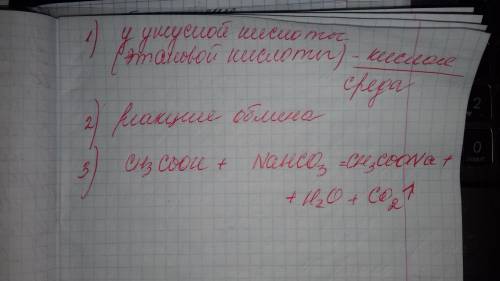 1) у уксусной кислоты
(этановой кислоты) - кислая
среда
2) реакция обмена
3) CH3COOH + NaHCO3 = CH3COONa +
+ H2O + CO2↑
2
0